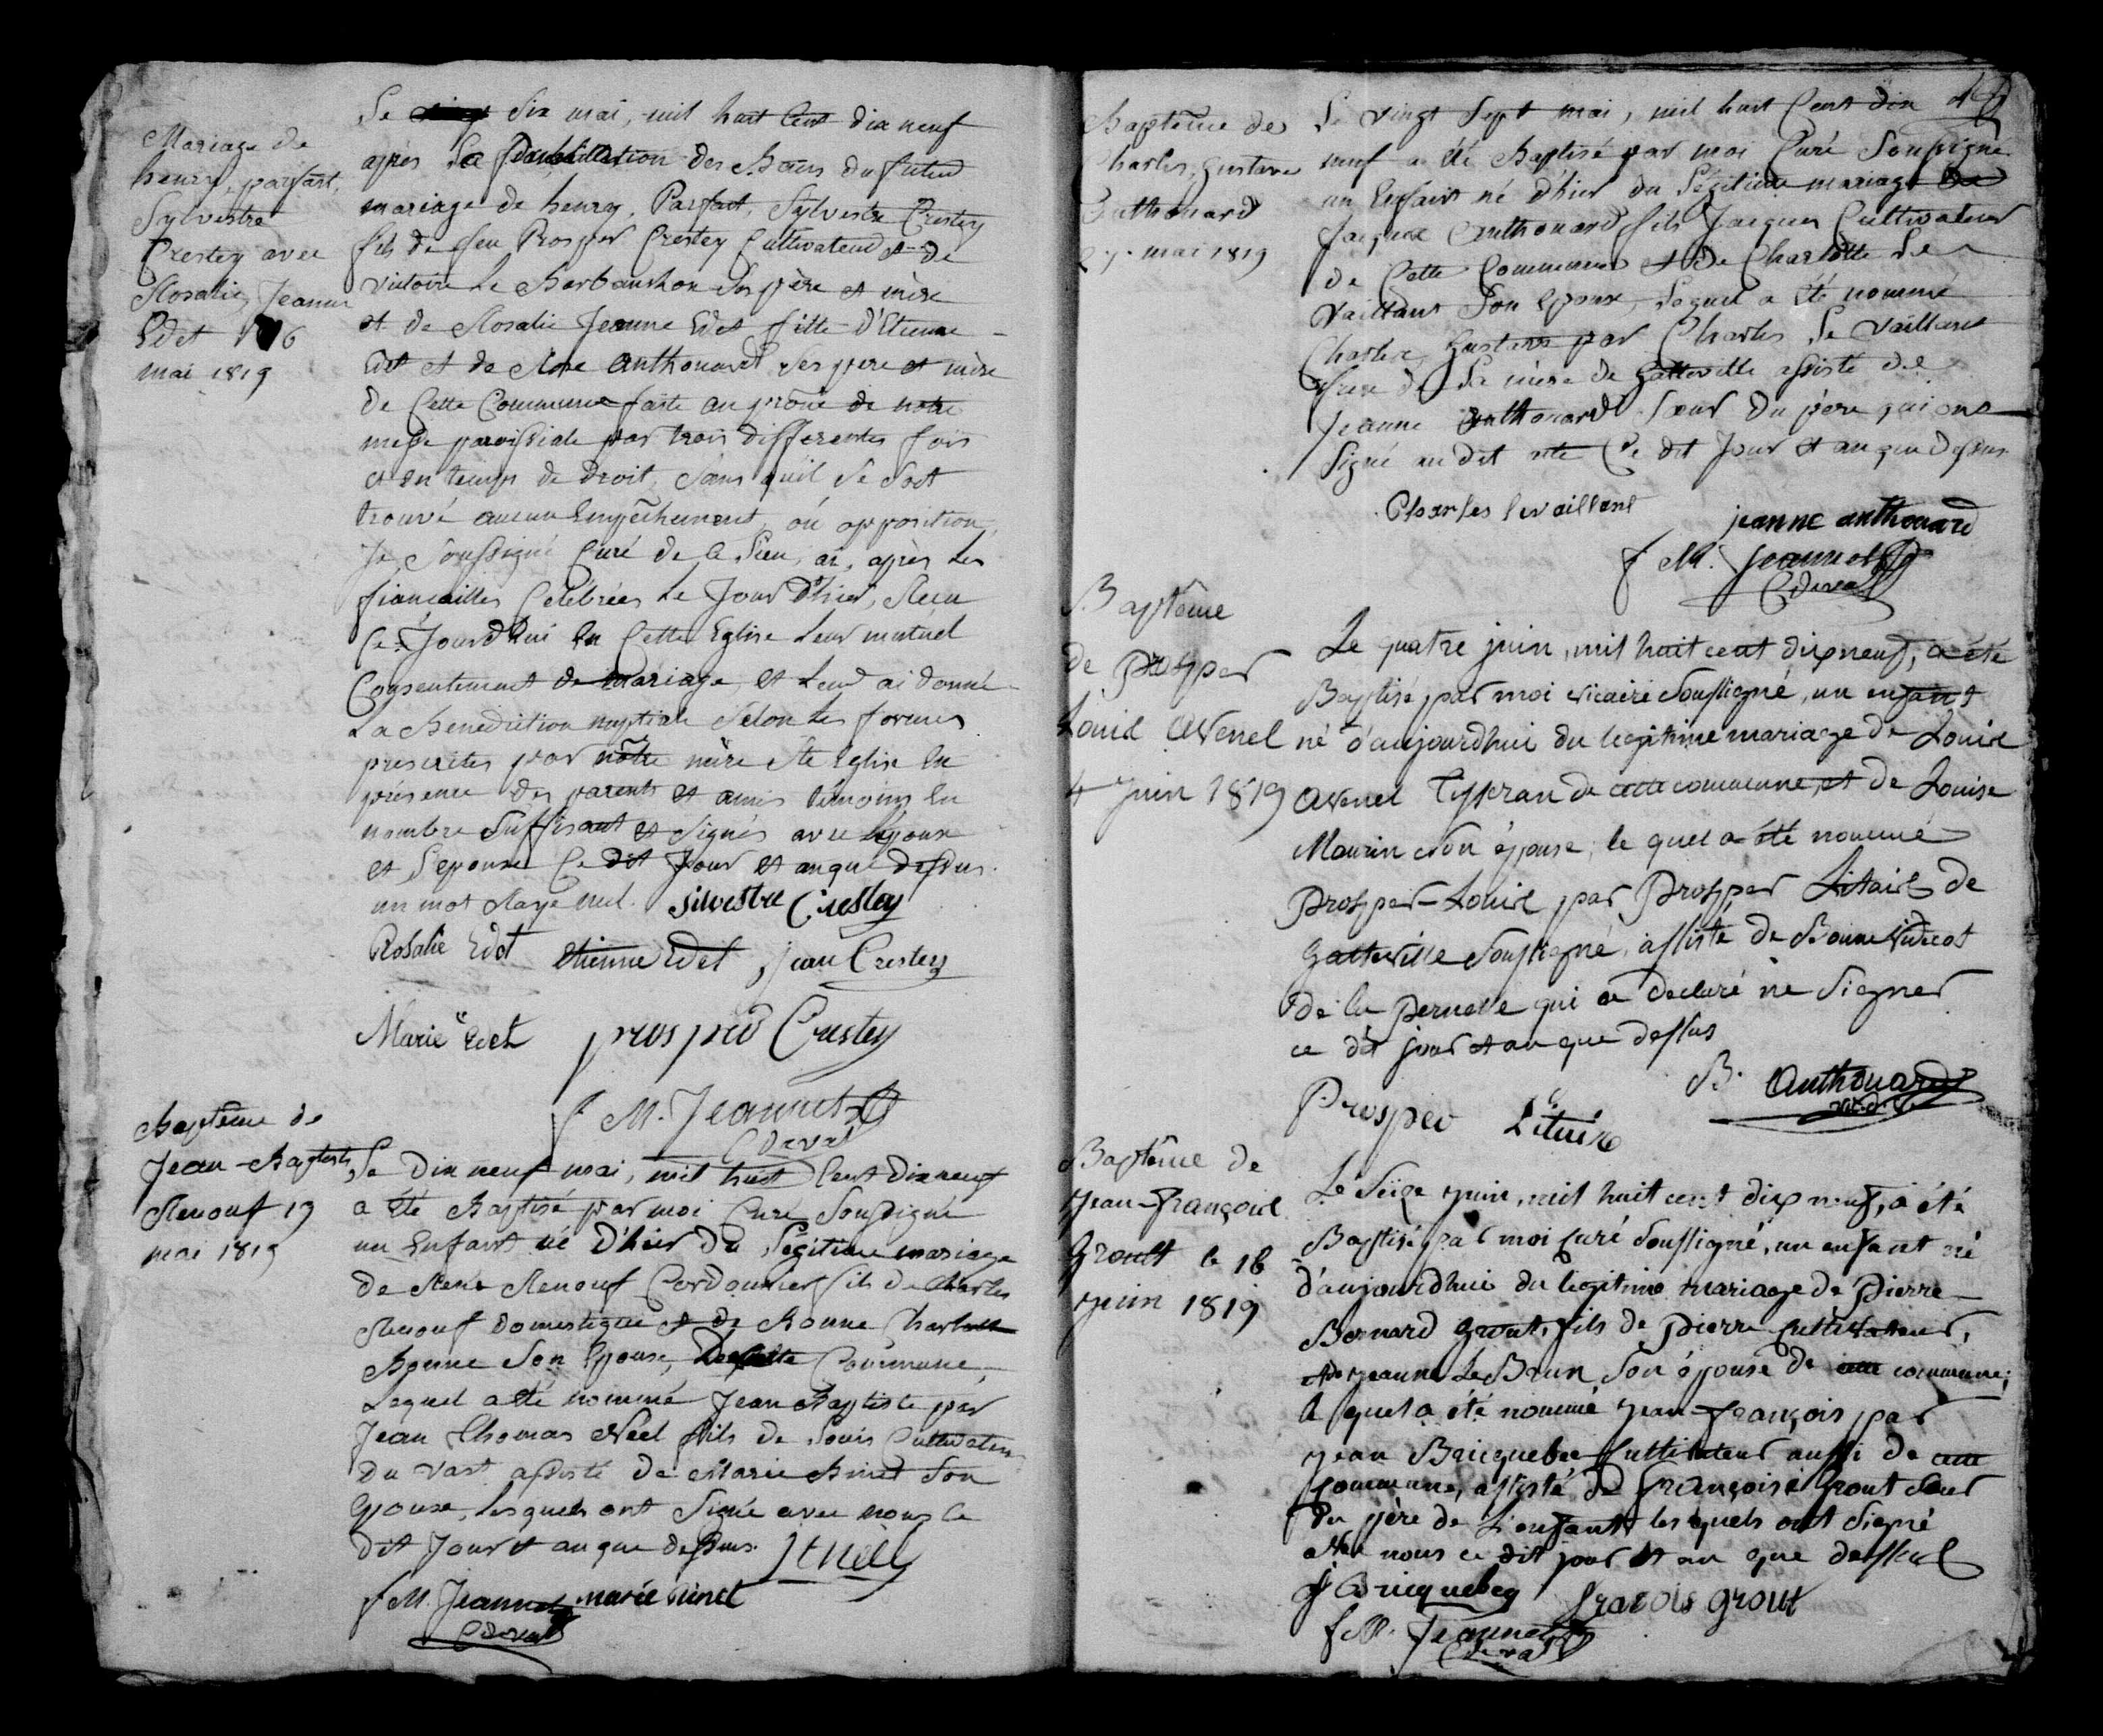 Mariage de
henry, parfait,
Sylvestre
Crestey avec
Rosalie, Jeanne
Edet 6
mai 1819
Le six mai, mil huit Cent dix neuf
après la publication des Bans du futur
mariage de henry, Parfait, Sylvestre Crestey
fils de feu Prosper Crestey Cultivateur et de
victoire Le Barbanchon ses père et mère
et de Rosalie Jeanne Edet fille d'Etienne
Edet et de Rose Anthouard ses pere et mère
de Cette Commune faite au prône de notre
messe paroissiale par trois differentes fois
et en temps de droit, sans qu'il se soit
trouvé aucun Empêchement, où opposition,
Je, soussigné Curé de ce Lieu, ai, après les
fiançailles Célébrées le Jour d'hier, Reçu
Ce Jourd'hui en Cette Eglise leur mutuel
Consentement de mariage, et leur ai donné
La Benediction nuptiale selon les formes
prescrites par nôtre mère ste Eglise en
présence des parents et amis témoins en
nombre suffisant et signés avec l'époux
et l'epouse Ce dit Jour et an que dessus.
un mot Rayé nul. silvestre Crestey
Rosalie Edet etienne Edet jean Crestey
Marie Edet prosper Crestey
f M. Jeannet
C D V
Baptême de
Jean-Baptiste
Renouf 19
mai 1819
Le Dix neuf mai, mil huit Cent Dix neuf
a été Baptisé par moi Curé soussigné
un Enfant né d'hier du Légitime mariage
de René Renouf Cordonnier fils de Charles
Renouf domestique et de Bonne Charlotte
son Epouse, de cette Commune,
Lequel a été nommé Jean Baptiste par
Jean Thomas Néel fils de Louis Cultivateur
du vast assisté de Marie Binet son
Epouse, lesquels ont signé avec nous le
dit Jour et an que dessus. J t néel
f M. Jeannet marie Binet
Baptême de
Charles, Gustave
Anthouard
27 mai 1819
Le vingt sept mai, mil huit Cent dix
neuf a été Baptisé par moi Curé soussigné
un Enfant né d'hier du Légitime mariage de
Jacques Anthouard fils Jacques Cultivateur
de Cette Commune et de Charlotte Le
vaillant son Epouse, Lequel a été nommé
Charles, Gustave par Charles Le vaillant
frere de la mère de Gatteville assisté de
Jeanne Anthouard sœur du père qui ont
signé au dit Ce dit Jour et an que dessus
Charles levaillant jeanne anthouard
f M. Jeannet
Baptême
de Prosper
Louis Avenel
4 juin 1819
Le quatre juin, mil huit cent dix neuf, a été
Baptisé par moi vicaire soussigné, un enfant
né d'aujourdhui du legitime mariage de Louis
Avenel Tisseran de cette commune, et de Louise
Maurin son épouse, le quel a été nommé
Prosper-Louis par Prosper Litaire de
Gatteville soussigné, assisté de Bonne
de la Pernelle qui a declaré ne signer
ce dit jour et an que dessus
Prosper Litaire B. Anthouard
Baptême de
Jean-François
Groult le 16
juin 1819
Le seize juin, mil huit cent dix neuf, a été
Baptisé par moi curé soussigné, un enfant né
d'aujourdhui du legitime mariage de Pierre
Bernard Grout, fils de Pierre cultivateur,
et de jeanne Le Brun son épouse de cette commune;
le quel a été nommé jean-françois par
jean Bricquebec cultivateur aussi de cette
commune, assisté de françoise Grout sœur
du père de l'enfant les quels ont signé
avec nous ce dit jour et an que dessus
J Bricquebeq francois grout
f M. Jeannet